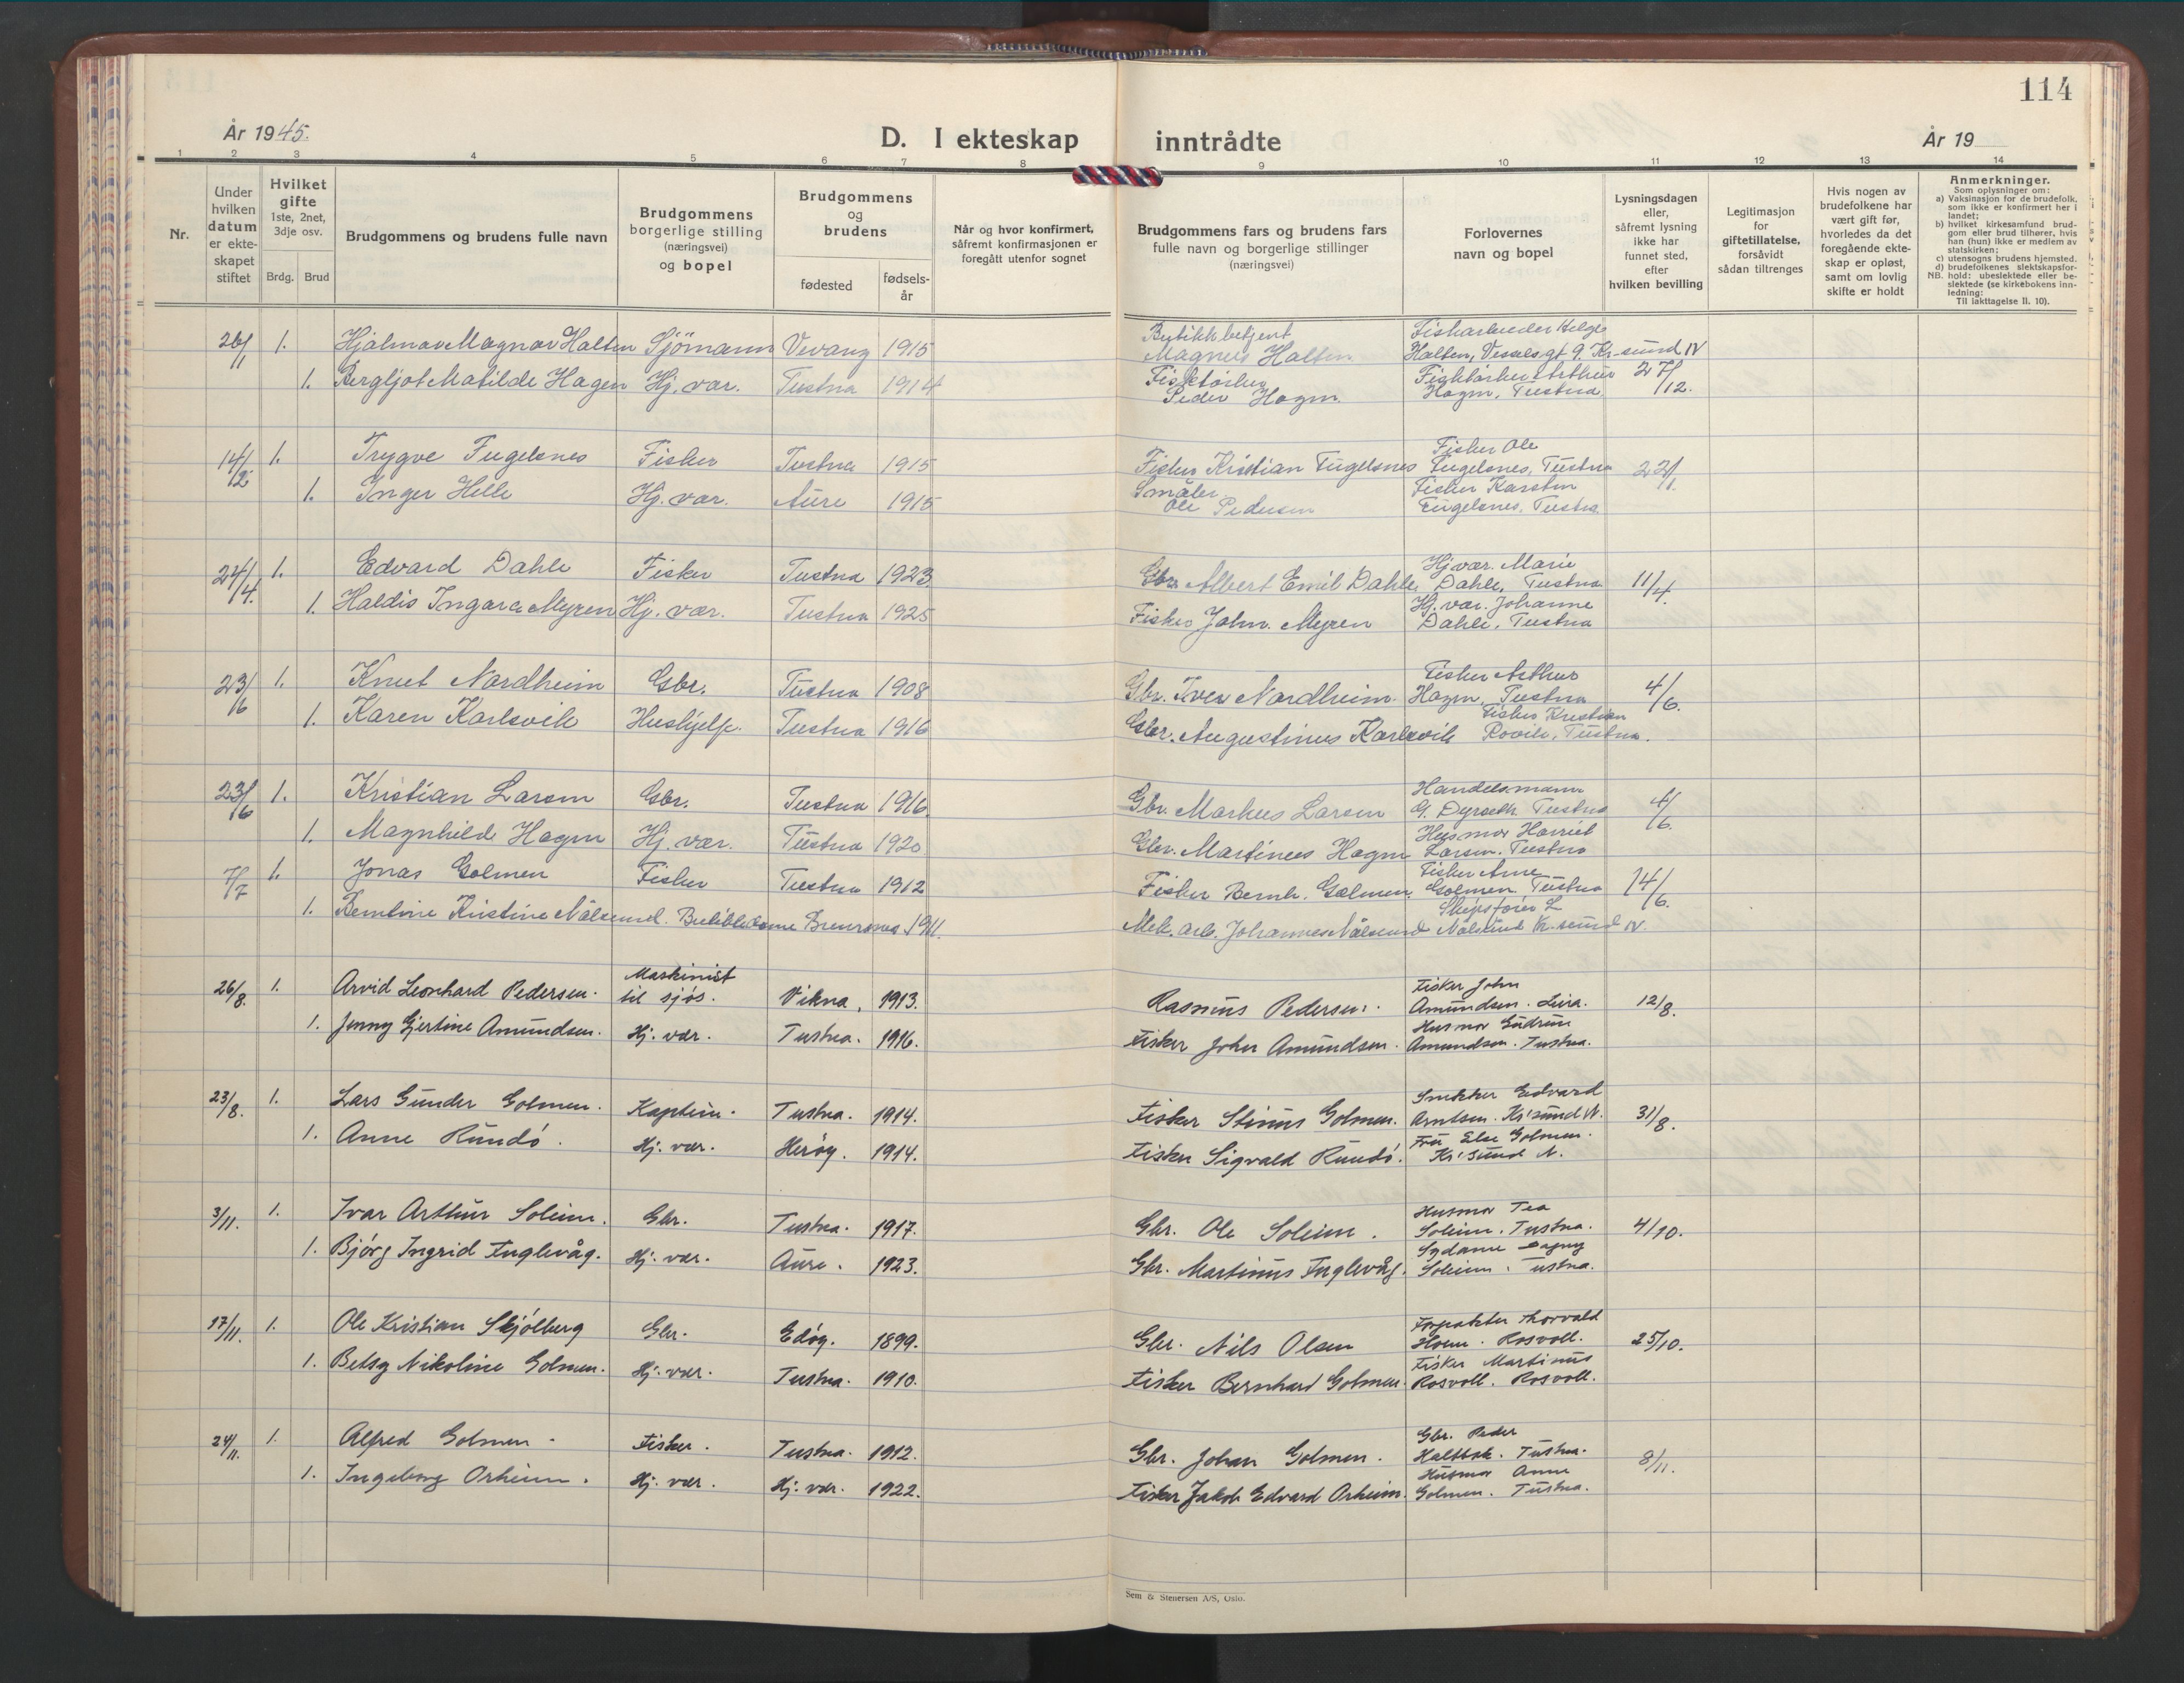 114
År 1945.
D. I ekteskap inntrådte
År 19
1 2 3 4 5 6 7 8 9 10 11 12 13 14
Nr.
Under hvilken datum er ekte-skapet stiftet
Hvilket gifte 1ste, 2net, 3dje osv.
Brdg. Brud
Brudgommens og brudens fulle navn
Brudgommens borgerlige stilling (næringsvei) og bopel
Brudgommens og brudens
fødested
fødsels-år
Når og hvor konfirmert, såfremt konfirmasjonen er foregått utenfor sognet
Brudgommens fars og brudens fars fulle navn og borgerlige stillinger (næringsvei)
Forlovernes navn og bopel
Lysningsdagen eller, såfremt lysning ikke har funnet sted, efter hvilken bevilling
Legitimasjon for giftetillatelse, forsåvidt sådan tiltrenges
Hvis nogen av brudefolkene har vært gift før, hvorledes da det foregående ekte-skap er opløst, samt om lovlig skifte er holdt
Anmerkninger.
Som oplysninger om:
a) Vaksinasjon for de brudefolk. som ikke er konfirmert her i landet;
b) hvilket kirkesamfund brud-gom eller brud tilhører, hvis han (hun) ikke er medlem av statskirken;
c) utensogns brudens hjemsted.
d) brudefolkenes slektskapsfor-hold: ubeslektede eller be-slektede (se kirkebokens inn-ledning:
NB.
Til iakttagelse II. 10).
26/1 1. Hjalmar Magnar Halten Sjömann Vevang 1915 Butikkbetjent Magnus Halten Fiskarbeider Helge Halten, Vesselsgt 9. Kr-sund N 27/12.
1. Bergljot Matilde Hagen Hj. vær. Tustna 1914 Peder Hagen. Arthur Hagen, Tustna
14/2 1. Trygve Fugelsnes Fisker Tustna 1915 Fisker Kristian Fugelsnes Fisker Ole Fugelsnes, Tustna 22/1.
1. Inger Helle Hj. vær. Aure 1915 Ole Pedersen Fisker Karsten Fugelsnes. Tustna
24/4. 1. Edvard Dahle Fisker Tustna 1923 Gbr. Albert Emil Dahle Hj.vær. Marie Dahle, Tustna 11/4.
1. Haldis Ingara Myren Hj. vær. Tustna 1925 Fisker John. Myren Hj. vær. Johanne Dahle, Tustna
23/6 1. Knut Nordheim Gbr. Tustna 1908 Gbr. Iver Nordheim. Fisker Arthur Hagen, Tustna 4/6.
1. Karen Karlsvik Hushjelp. Tustna 1916 Gbr. Augustinus Karlsvik Fisker Kristian Rovik, Tustna.
23/6 1. Kristian Larsen Gbr. Tustna 1916. Gbr. Markus Larsen Handelsmann G. Dyrseth Tustna 4/6.
1. Magnhild Hagen Hj. vær. Tustna 1920 Gbr. Martinus Hagen Husmor Harriet Larsen. Tustna
7/7 1. Jonas Golmen Fisker Tustna 1912 Fisker Bernh. Golmen. Fisker Arne Golmen Tustna 14/6.
1. Bentine Kristine Nålsund. Butikkdame 1911. Mek. arb. Johannes Nålsund Skipsfører L Nålsund Kr-sund N.
26/8. 1. Arvid Leonhard Pedersen. Maskinist til sjøs. Vikna. 1913. Rasmus Pedersen. Fisker John Amundsen. Leira. 12/8.
1. Jenny Gjertine Amundsen. Hj. vær. Tustna. 1916. Fisker John Amundsen. Husmor Gudrun Amundsen. Tustna.
23/8. 1. Lars Gunder Golmen. Kaptein. Tustna. 1914. Fisker Stinus Golmen. Snekker Edvard Arntsen. Kr'sund N. 31/8.
1. Anne Rundö. Hj. vær. Herøy. 1914. Fisker Sigvald Rundö. Fru Else Golmen. Kr'sund N.
3/11. 1. Ivar Arthur Soleim. Gbr. Tustna. 1917. Gbr. Ole Soleim. Husmor Tea Soleim. Tustna. 4/10.
1. Bjørg Ingrid Fuglevåg. Hj. vær. Aure. 1923. Gbr. Martinus Fuglevåg. Sydame Dagny Soleim. Tustna.
17/11. 1. Ole Kristian Skjølberg Gbr. Edøy. 1899. Gbr. Nils Olsen Forpakter Thorvald Hoem. Rosvoll. 25/10.
1. Betsy Nikoline Golmen. Hj. vær. Tustna. 1910. Fisker Bernhard Golmen. Fisker Martinus Rosvoll. Rosvoll.
24/11. 1. Alfred Golmen. Fisker. Tustna. 1912. Gbr. Johan Golmen. Gbr. Peder Tustna. 8/11.
1. Ingeborg Orheim. Hj. vær. Hj. vær. 1922. Fisker Jakob Edvard Orheim. Husmor Anne Golmen. Tustna.
Sem & Stenersen A/S, Oslo.